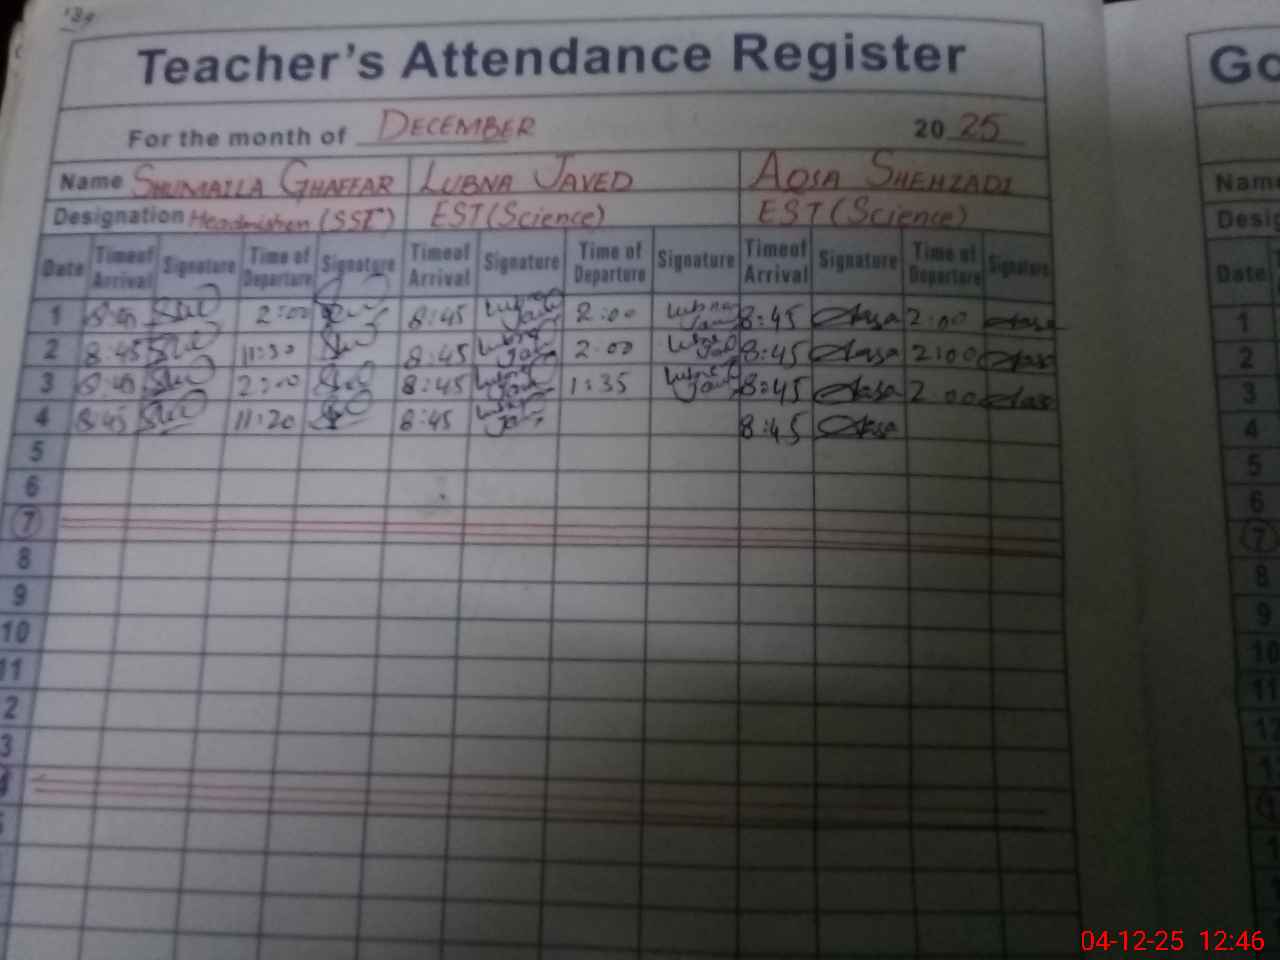 Teacher's Attendance Register
For the month of DECEMBER 2025
Name SHUMAILA GHAFFAR LUBNA JAVED AQSA SHEHZADI
Designation Headmistress (SST) EST (Science) EST (Science)
Date Time of Arrival Signature Time of Departure Signature Time of Arrival Signature Time of Departure Signature Time of Arrival Signature Time of Departure Signature
1 2:00 8:45 Lubna Javed 2:00 Lubna Javed 8:45 Aqsa 2:00 Aqsa
2 8:45 11:30 8:45 Lubna Javed 2:00 Lubna Javed 8:45 Aqsa 2:00 Aqsa
3 2:00 8:45 Lubna Javed 1:35 Lubna Javed 8:45 Aqsa 2:00 Aqsa
4 8:45 11:20 8:45 Lubna Javed 8:45 Aqsa
5
6
7
8
9
10
11
2
3
4
Name
Date
1
2
3
4
5
6
7
8
9
10
11
04-12-25 12:46